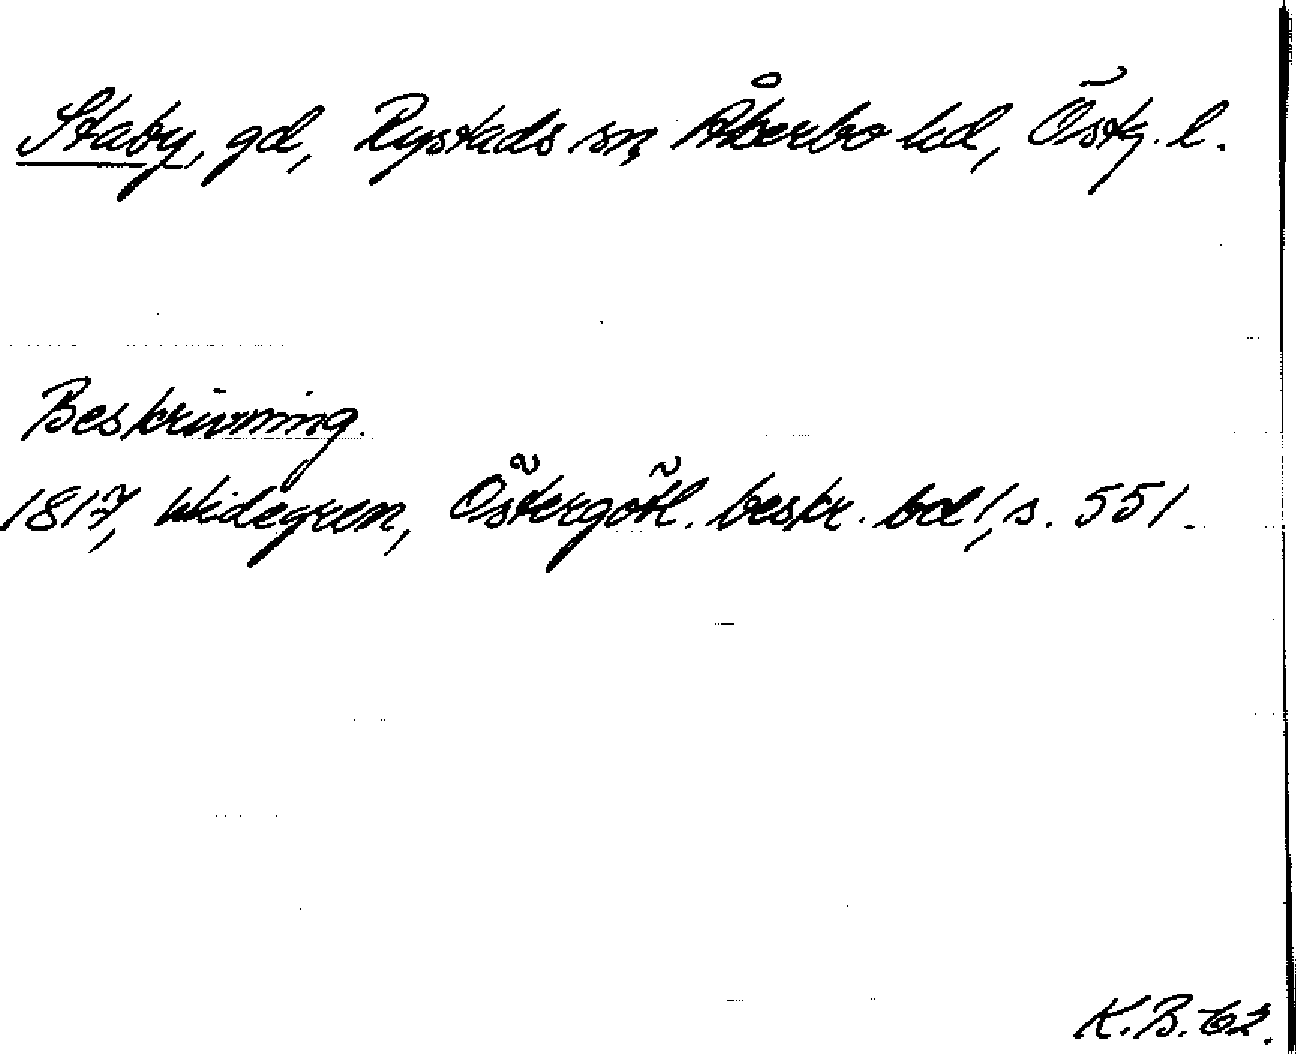 Staby, gd, Rystads sn, Åkerbo hd, Östg. l.
Beskrivning.
1817, Widegren, Östergötl. beskr. bd 1, s. 551.
K.B. 62.